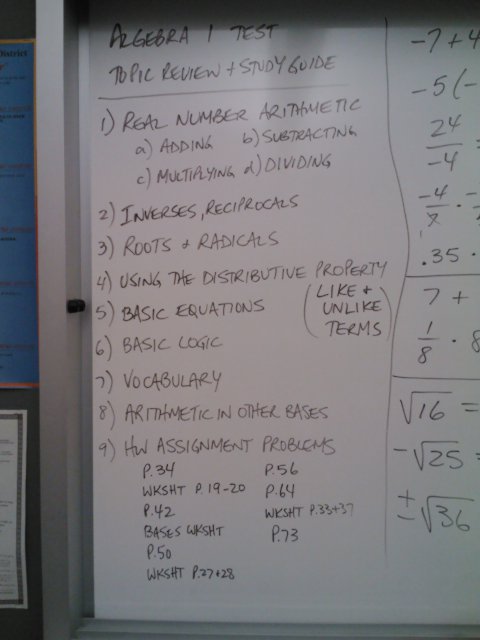 ALGEBRA 1 TEST
TOPIC REVIEW + STUDY GUIDE
1) REAL NUMBER ARITHMETIC
a) ADDING b) SUBTRACTING
c) MULTIPLYING d) DIVIDING
2) INVERSES, RECIPROCALS
3) ROOTS + RADICALS
4) USING THE DISTRIBUTIVE PROPERTY
(LIKE + UNLIKE TERMS)
5) BASIC EQUATIONS
6) BASIC LOGIC
7) VOCABULARY
8) ARITHMETIC IN OTHER BASES
9) HW ASSIGNMENT PROBLEMS
P.34
WKSHT P. 19-20
P.42
BASES WKSHT
P.50
WKSHT P.27+28
P.56
P.64
WKSHT P.33+37
P.73
-7 + 4
-5(-
24/-4 =
.35 ·
7 +
1/8 · 8
√16 =
-√25 =
±√36
District